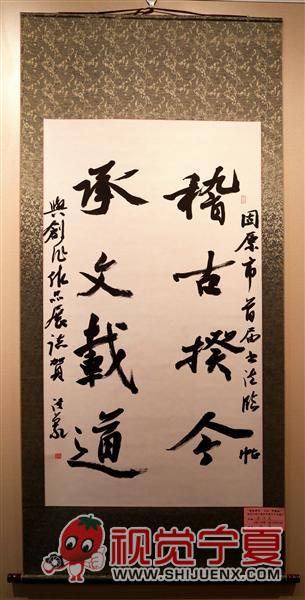 固原市首届书法临帖
稽古揆今
承文载道
與創作作品展誌賀
视觉宁夏
WWW.SHIJUENX.COM